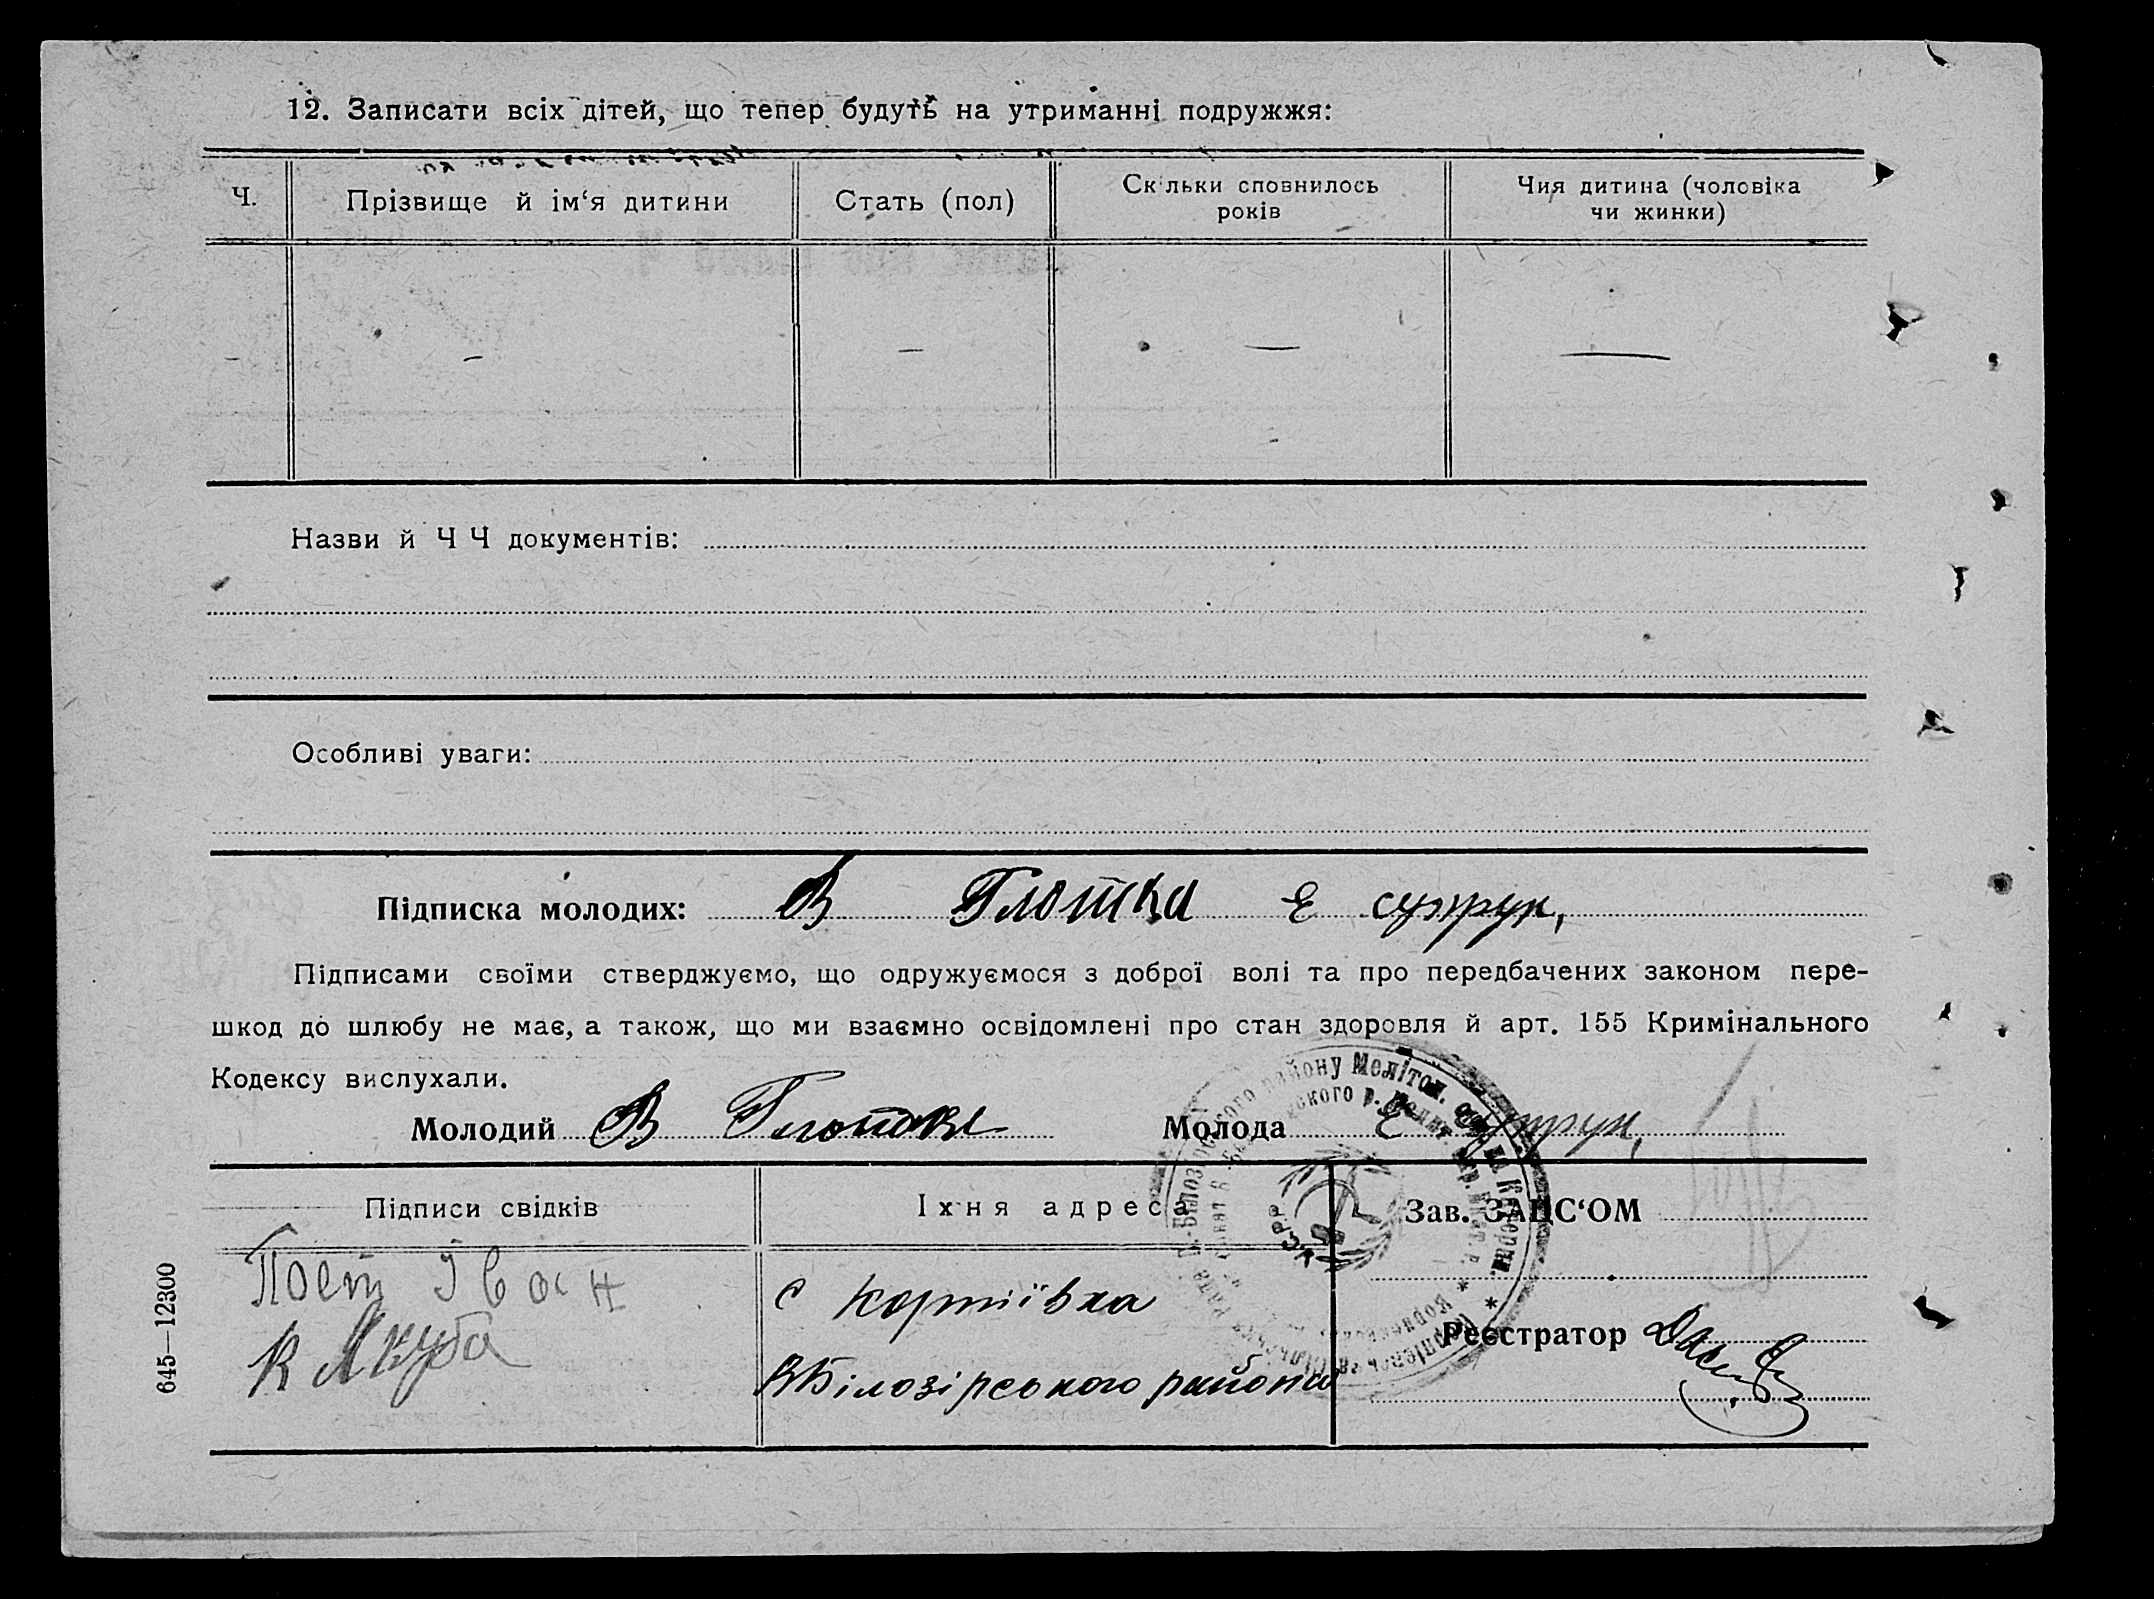 12. Записати всіх дітей, що тепер будуть на утриманні подружжя:
Ч.
Прізвище й ім‘я дитини
Стать (пол)
Скільки сповнилось
років
Чия дитина (чоловіка
чи жинки)
— — — — —
Назви й Ч Ч документів:
Особливі уваги:
Підписка молодих: В Глотка Е супрун,
Підписами своїми стверджуємо, що одружуємося з доброї волі та про передбачених законом пере-
шкод до шлюбу не має, а також, що ми взаємно освідомлені про стан здоровля й арт. 155 Кримінального
Кодексу вислухали.
Молодий В Глотка Молода Е супрун,
Підписи свідків
Їхня адреса
Зав. ЗАЦС‘ОМ
Поет Іван
К Якуба
с Корніївка
ВБілозірського района
Реєстратор
645—12300
району Меліто
УСРР